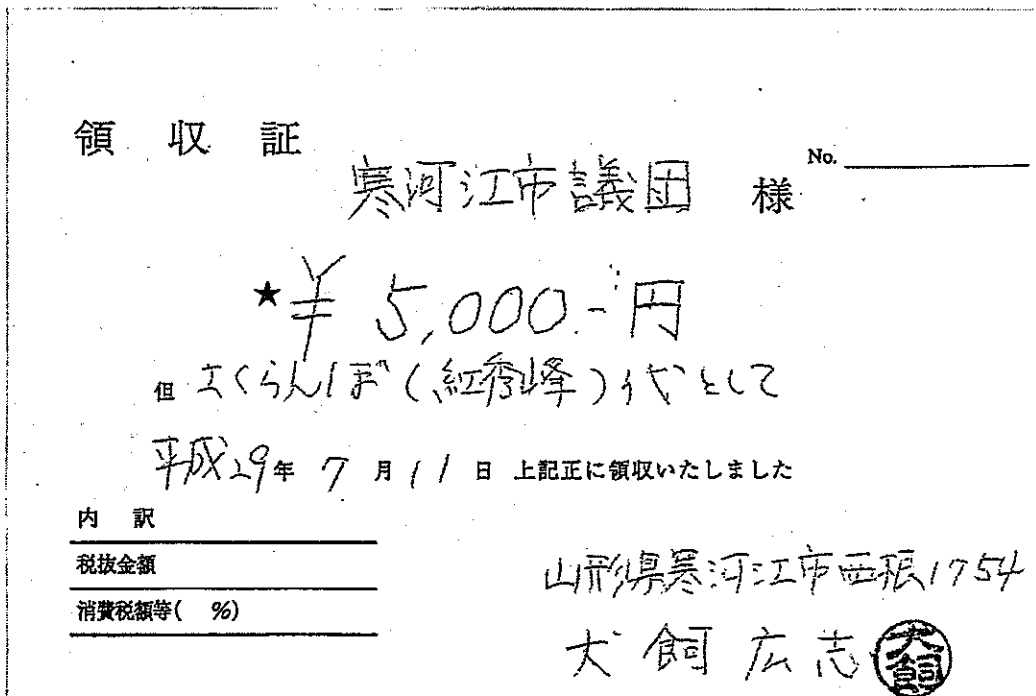 領収証
No.
寒河江市議団 様
★¥5,000.-円
但 さくらんぼ(紅秀峰)代として
平成29年 7月11日 上記正に領収いたしました
内訳
税抜金額
消費税額等( %)
山形県寒河江市西根1754
犬飼広志
犬飼